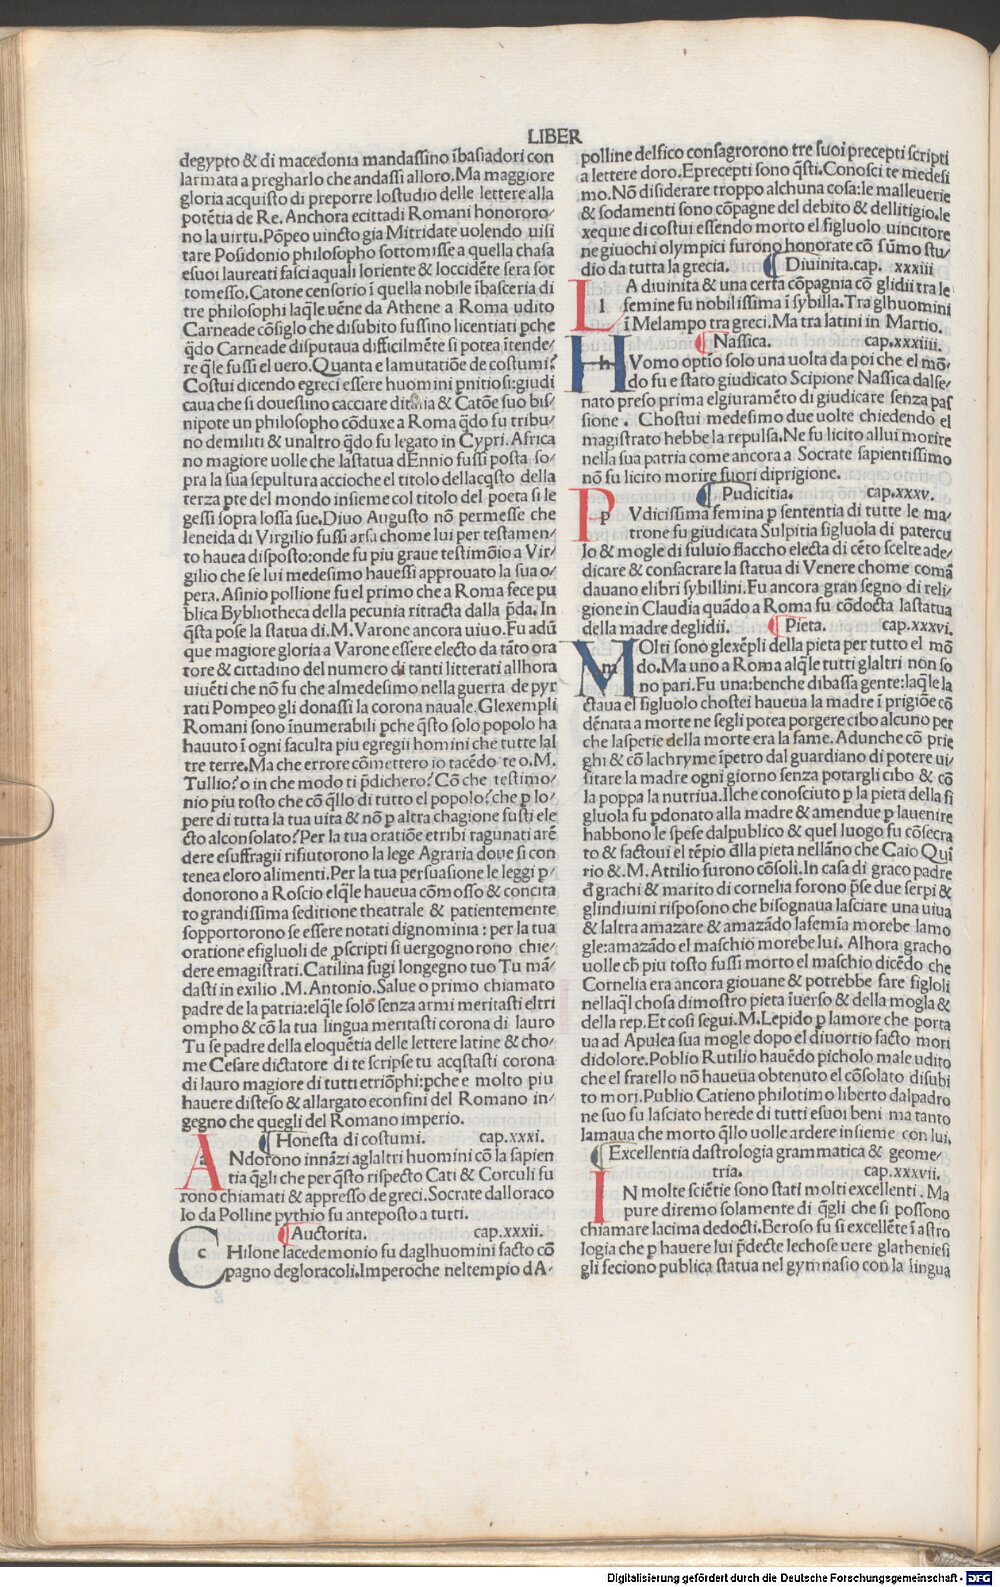 LIBER
degypto & di macedonia mandaſſino ībaſiadori con
larmata a pregharlo che andaſſi alloro. Ma maggiore
gloria acquiſto di preporre loſtudio delle lettere alla
potētia de Re. Anchora ecittadi Romani honororo⸗
no la uirtu. Pōpeo uincto gia Mitridate uolendo uiſi
tare Poſidonio philoſopho ſottomiſſe a quella chaſa
eſuoi laureati faſci aquali loriente & loccidēte ſera ſot
tomeſſo. Catone cenſorio ī quella nobile ībaſceria di
tre philoſophi laq̄le uēne da Athene a Roma udito
Carneade cōſiglo che diſubito fuſſino licentiati ꝑche
q̄do Carneade diſputaua difficilmēte ſi potea ītende⸗
re q̄le fuſſi el uero. Quanta e lamutatiōe de coſtumi?
Coſtui dicendo egreci eſſere huomini pnitioſi: giudi
caua che ſi doueſſino cacciare ditalia & Catōe ſuo biſ⸗
nipote un philoſopho cōduxe a Roma q̄do fu tribu⸗
no demiliti & unaltro q̄do fu legato in Cypri. Africa
no magiore uolle che laſtatua dEnnio fuſſi poſta ſo⸗
pra la ſua ſepultura accioche el titolo dellacq̄ſto della
terza ꝑte del mondo inſieme col titolo del poeta ſi le
geſſi ſopra loſſa ſue. Diuo Auguſto nō permeſſe che
leneida di Virgilio fuſſi arſa chome lui per teſtamen⸗
to hauea diſpoſto: onde fu piu graue teſtimōio a Vir⸗
gilio che ſe lui medeſimo haueſſi approuato la ſua o⸗
pera. Aſinio pollione fu el primo che a Roma fece pu
blica Bybliotheca della pecunia ritracta dalla p̄da. In
q̄ſta poſe la ſtatua di. M. Varone ancora uiuo. Fu adū
que magiore gloria a Varone eſſere electo da tāto ora
tore & cittadino del numero di tanti litterati allhora
uiuēti che nō fu che almedeſimo nella guerra de pyr
rati Pompeo gli donaſſi la corona nauale. Glexempli
Romani ſono īnumerabili ꝑche q̄ſto ſolo popolo ha
hauuto ī ogni faculta piu egregii homini che tutte lal
tre terre. Ma che errore cōmettero io tacēdo te o. M.
Tullio? o in che modo ti p̄dichero? Cō che teſtimo⸗
nio piu toſto che cō q̄llo di tutto el popolo? che ꝑ lo⸗
pere di tutta la tua uita & nō ꝑ altra chagione fuſti ele
cto alconſolato? Per la tua oratiōe etribi ragunati arē
dere eſuffragii rifiutorono la lege Agraria doue ſi con
tenea eloro alimenti. Per la tua perſuaſione le leggi ꝑ⸗
donorono a Roſcio elq̄le haueua cōmoſſo & concita
to grandiſſima ſeditione theatrale & patientemente
ſopportorono ſe eſſere notati dignominia: per la tua
oratione efigluoli de ꝓſcripti ſi uergognorono chie⸗
dere emagiſtrati. Catilina fugi longegno tuo Tu mā⸗
daſti in exilio .M. Antonio. Salue o primo chiamato
padre de la patria: elq̄le ſolo ſenza armi meritaſti eltri
ompho & cō la tua lingua meritaſti corona di lauro
Tu ſe padre della eloquētia delle lettere latine & cho⸗
me Ceſare dictatore di te ſcripſe tu acq̄ſtaſti corona
di lauro magiore di tutti etriōphi: ꝑche e molto piu
hauere diſteſo & allargato econfini del Romano in⸗
gegno che quegli del Romano imperio.
Honeſta di coſtumi. cap.xxxi.
A Ndorono innāzi aglaltri huomini cō la ſapien
tia q̄gli che per q̄ſto riſpecto Cati & Corculi fu
rono chiamati & appreſſo de greci. Socrate dalloraco
lo da Polline pythio fu antepoſto a tutti.
Auctorita. cap.xxxii.
C Hilone lacedemonio fu daglhuomini facto cō
pagno degloracoli. Imperoche neltempio dA⸗
polline delfico conſagrorono tre ſuoi precepti ſcripti
a lettere doro. Eprecepti ſono q̄ſti. Conoſci te medeſi
mo. Nō diſiderare troppo alchuna coſa: le malleuerie
& ſodamenti ſono cōpagne del debito & dellitigio. le
xequie di coſtui eſſendo morto el figluolo uincitore
ne giuochi olympici furono honorate cō ſūmo ſtu⸗
dio da tutta la grecia. Diuinita. cap. xxxiii
L A diuinita & una certa cōpagnia cō glidii tra le
femine fu nobiliſſima ī ſybilla. Tra glhuomini
ī Melampo tra greci. Ma tra latini in Martio.
Naſſica. cap.xxxiiii.
H Vomo optīo ſolo una uolta da poi che el mō⸗
do fu e ſtato giudicato Scipione Naſſica dalſe⸗
nato preſo prima elgiuramēto di giudicare ſenza paſ
ſione. Choſtui medeſimo due uolte chiedendo el
magiſtrato hebbe la repulſa. Ne fu licito allui morire
nella ſua patria come ancora a Socrate ſapientiſſimo
nō fu licito morire fuori diprigione.
Pudicitia. cap.xxxv.
P Vdiciſſima femina ꝑ ſententia di tutte le ma⸗
trone fu giudicata Sulpitia figluola di patercu
lo & mogle di fuluio flaccho electa di cēto ſcelte ade⸗
dicare & conſacrare la ſtatua di Venere chome comā
dauano elibri ſybillini. Fu ancora gran ſegno di reli⸗
gione in Claudia quādo a Roma fu cōdocta laſtatua
della madre deglidii. Pieta. cap.xxxvi.
M Olti ſono glexēpli della pieta per tutto el mō
do. Ma uno a Roma alq̄le tutti glaltri non ſo
no pari. Fu una: benche dibaſſa gente: laq̄le la
ctaua el figluolo choſtei haueua la madre ī prigiōe cō
dēnata a morte ne ſegli potea porgere cibo alcuno per
che laſpetie della morte era la fame. Adunche cō prie
ghi & cō lachryme īpetro dal guardiano di potere ui⸗
ſitare la madre ogni giorno ſenza potargli cibo & cō
la poppa la nutriua. Ilche conoſciuto ꝑ la pieta della fi
gluola fu ꝑdonato alla madre & amendue ꝑ lauenire
habbono le ſpeſe dalpublico & quel luogo fu cōſecra
to & factoui el tēpio d̄lla pieta nellāno che Caio Qui
rio &. M. Attilio furono cōſoli. In caſa di graco padre
d̄ grachi & marito di cornelia forono p̄ſe due ſerpi &
glindiuini riſpoſono che biſognaua laſciare una uiua
& laltra amazare & amazādo lafemīa morebe lamo
gle: amazādo el maſchio morebe lui. Alhora gracho
uolle ch̄ piu toſto fuſſi morto el maſchio dicēdo che
Cornelia era ancora giouane & potrebbe fare figloli
nellaq̄l choſa dimoſtro pieta īuerſo & della mogla &
della rep. Et coſi ſegui. M. Lepido ꝑ lamore che porta
ua ad Apulea ſua mogle dopo el diuortio facto mori
didolore. Poblio Rutilio hauēdo picholo male udito
che el fratello nō haueua obtenuto el cōſolato diſubi
to mori. Publio Catieno philotimo liberto dalpadro
ne ſuo fu laſciato herede di tutti eſuoi beni ma tanto
lamaua che morto q̄llo uolle ardere inſieme con lui.
Excellentia daſtrologia grammatica & geome⸗
tria. cap.xxxvii.
I N molte ſciētie ſono ſtati molti excellenti. Ma
pure diremo ſolamente di q̄gli che ſi poſſono
chiamare lacima dedocti. Beroſo fu ſi excellēte ī aſtro
logia che ꝑ hauere lui p̄decte lechoſe uere glathenieſi
gli feciono publica ſtatua nel gymnaſio con la lingua
Digitalisierung gefördert durch die Deutsche Forschungsgemeinschaft - DFG